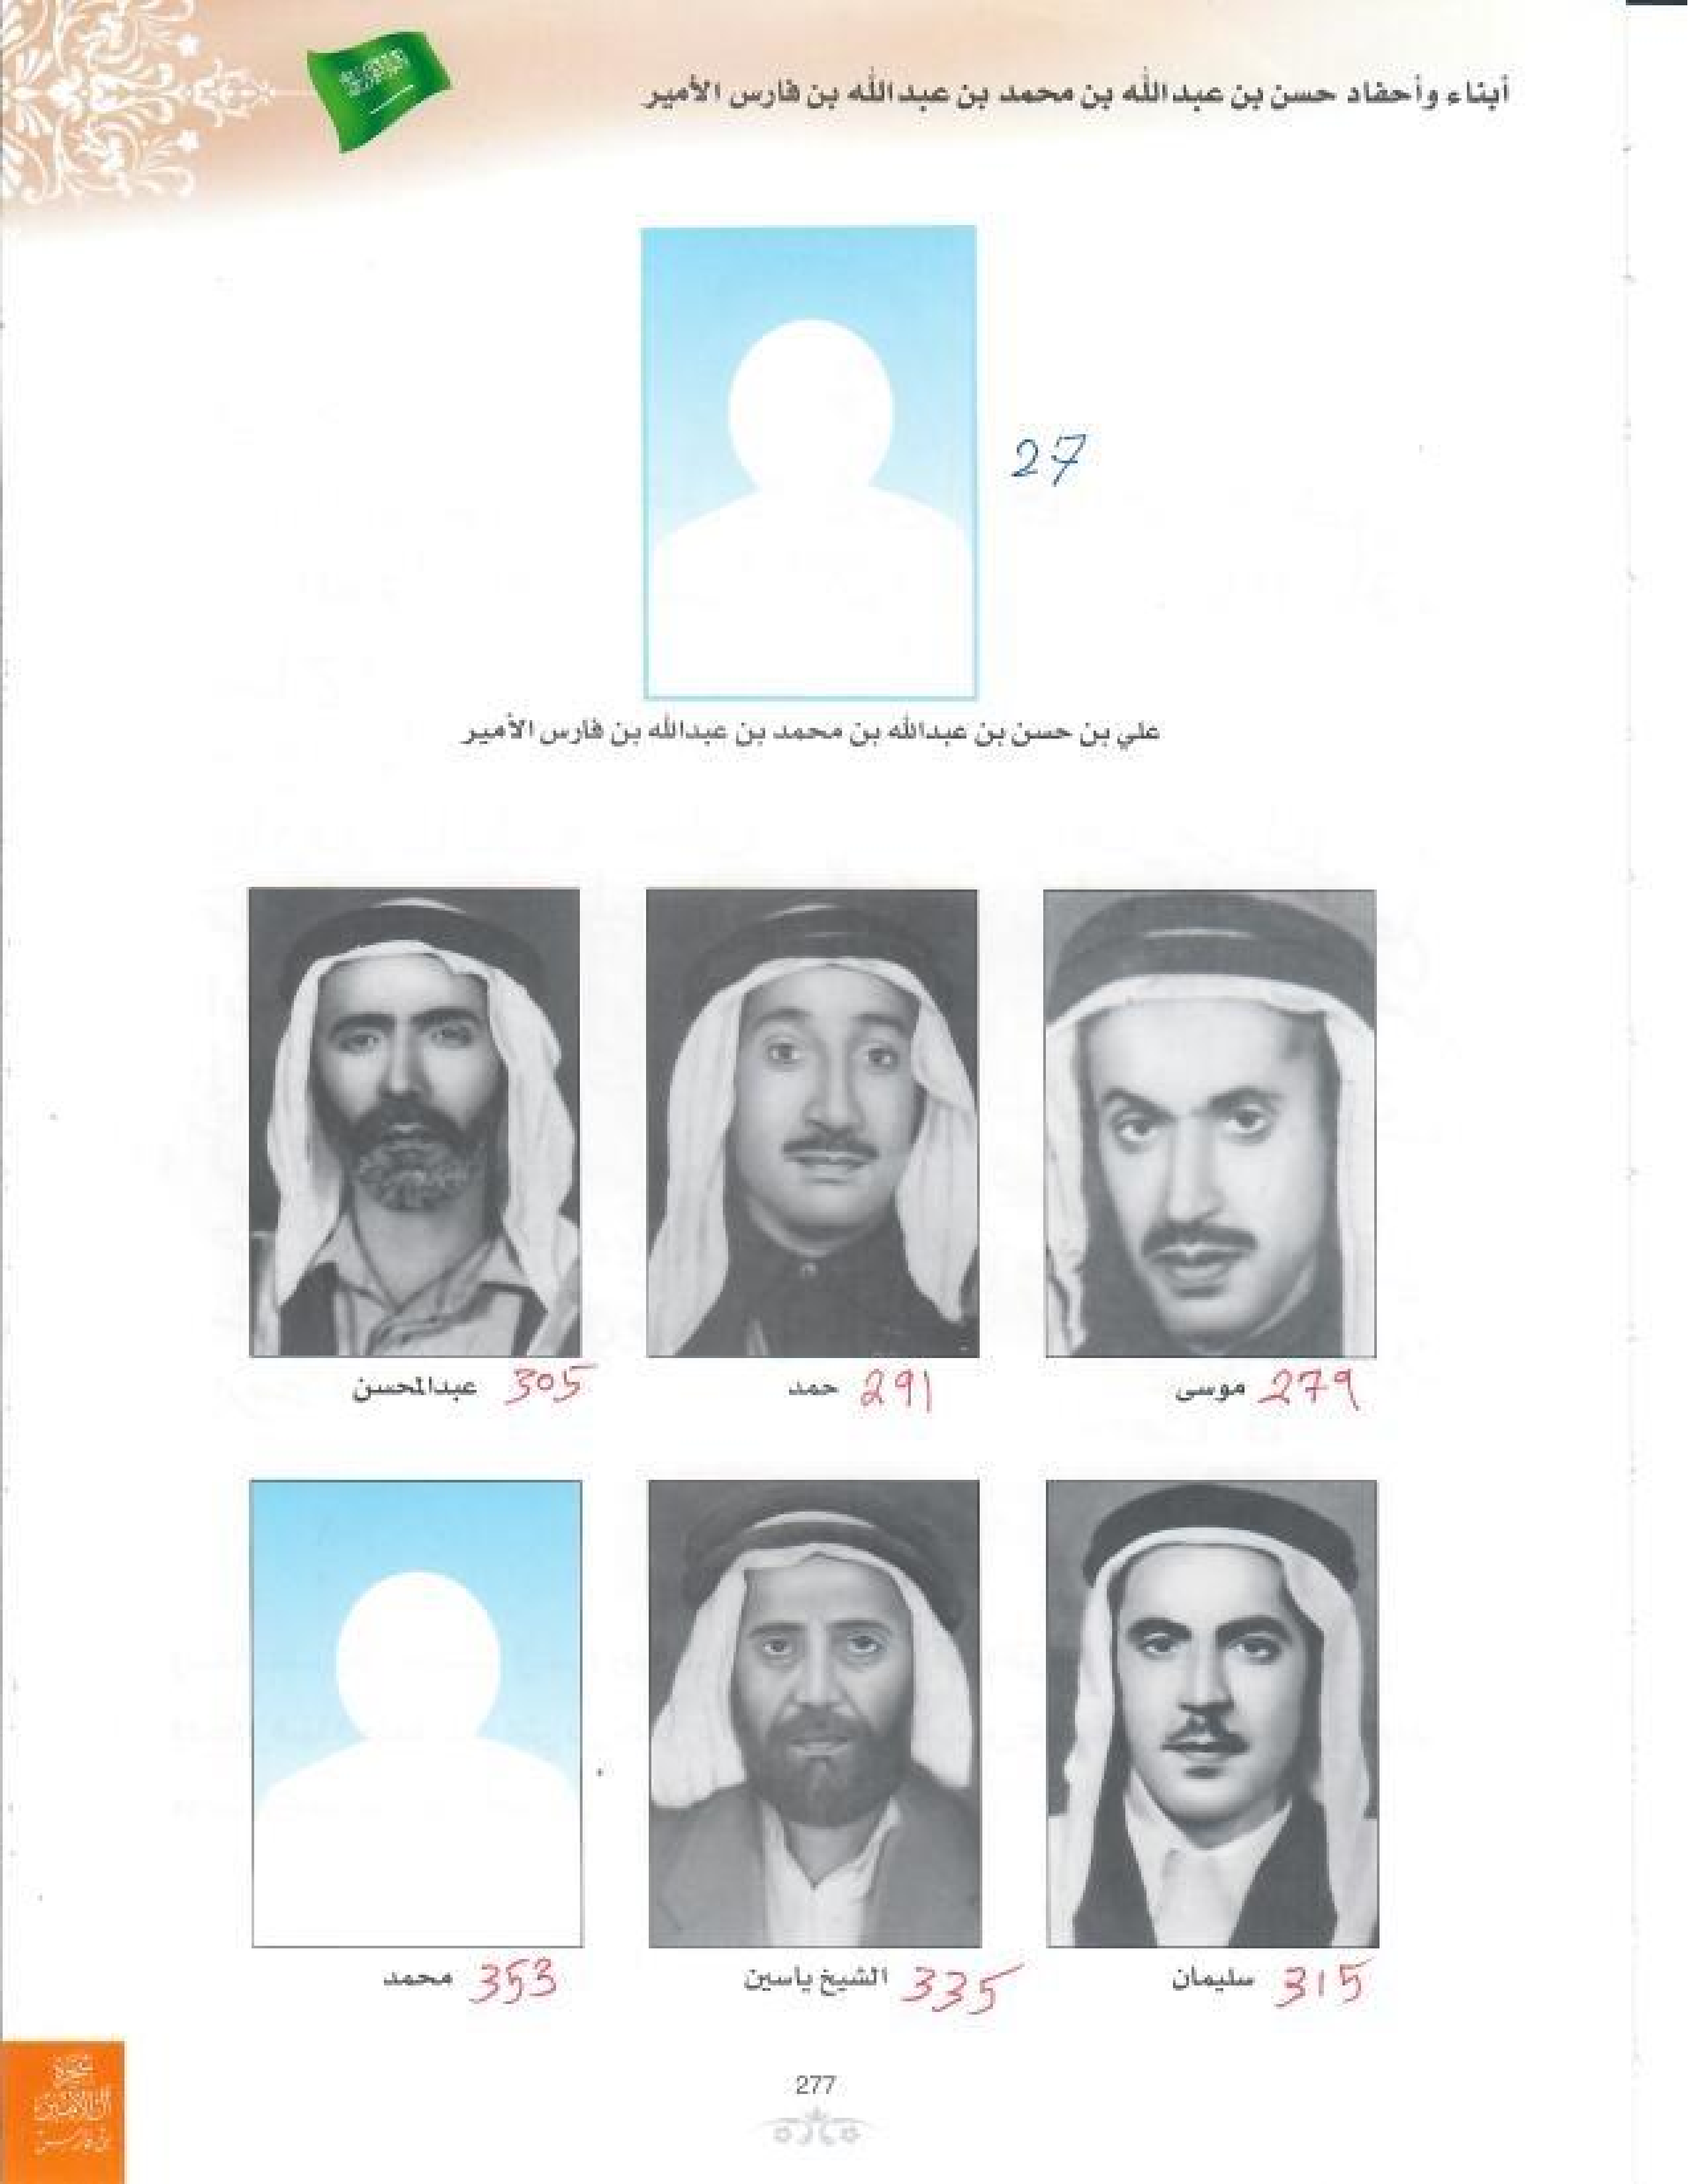 أبناء وأحفاد حسن بن عبدالله بن محمد بن عبدالله بن فارس الأمير
27
علي بن حسن بن عبدالله بن محمد بن عبدالله بن فارس الأمير
279 موسى
291 حمد
305 عبدالمحسن
315 سليمان
335 الشيخ ياسين
353 محمد
277
شجرة
آل الأمير
بن فارس